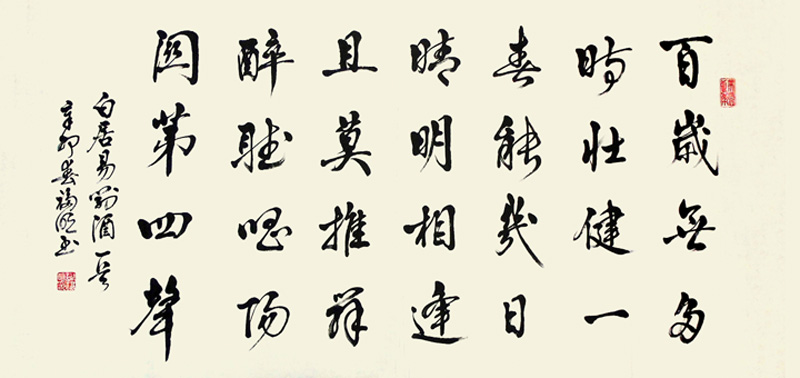 百歲無多
時壯健一
春能幾日
晴明相逢
且莫推辞
醉聽唱陽
關第四聲
白居易對酒一首
辛卯春福書